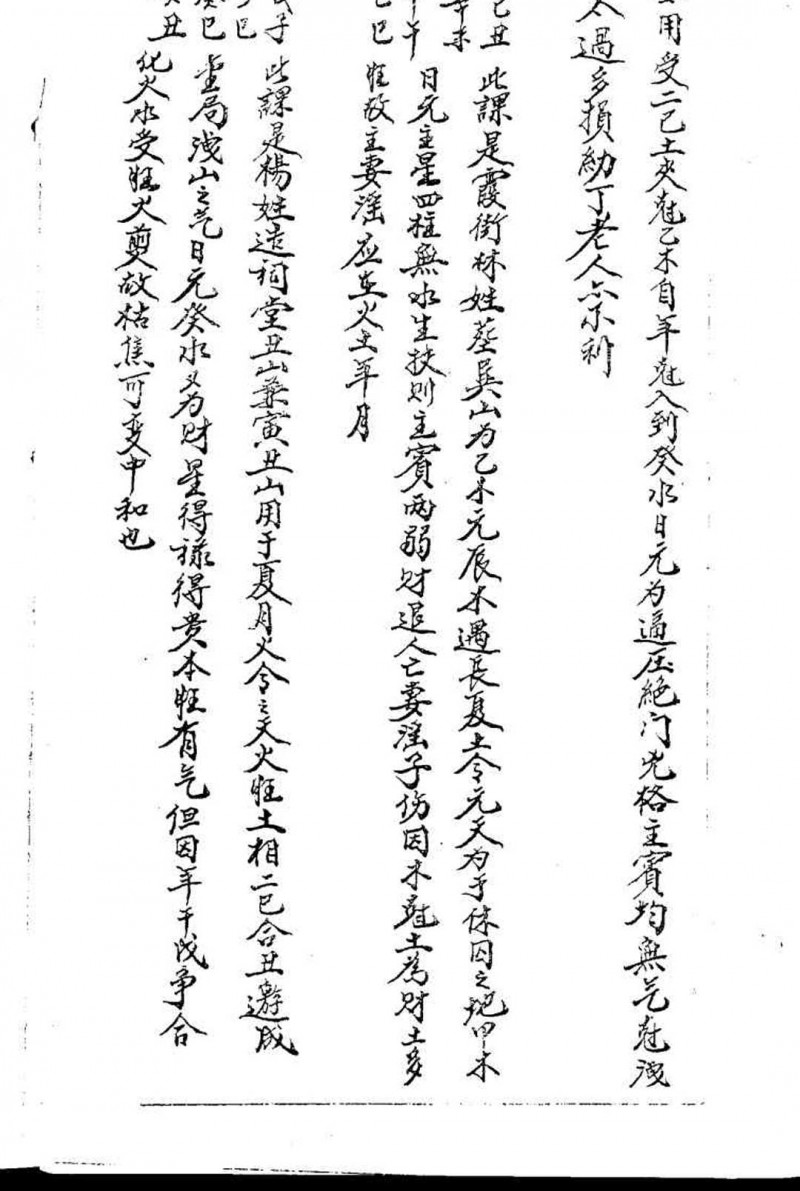 用受二己土夹尅乙木自年尅入到癸水日元为逼压絕门兇格主賓均無气尅洩
太過多損幼丁老人亦不利
己丑
辛未
甲午
己巳
此課是霞街林姓葬巽山为乙木元辰木遇長夏土令元天为于休囚之地甲木
日元主星四柱無水生扶则主賓两弱财退人亡妻淫子伤因木尅土為财土多
旺故主妻淫应在火土年月
戊子
丁巳
癸巳
癸丑
此課是楊姓造祠堂丑山兼寅丑山用于夏月火令之天火旺土相二巳合丑邀成
金局洩山之气日元癸水又为财星得祿得贵本旺有气但因年干戊争合
化火水受旺火剪故枯焦可变中和也